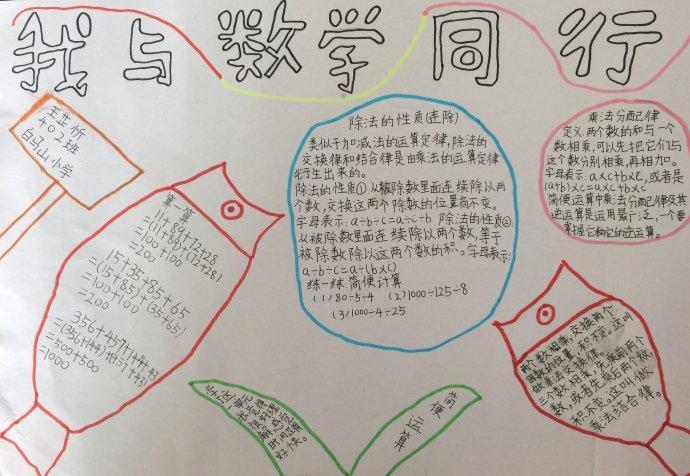 我与数学同行
402班
白马山小学
算一算
11+89+72+28
=(11+89)+(72+28)
=100+100
=200
15+35+85+65
=(15+85)+(35+65)
=100+100
=200
356+457+144+43
=(356+144)+(457+43)
=500+500
=1000
除法的性质(连除)
类似于加减法的运算定律,除法的
交换律和结合律是由乘法的运算定律
衍生出来的。
除法的性质①:从被除数里面连续除以两
个数,交换这两个除数的位置商不变。
字母表示:a÷b÷c=a÷c÷b 除法的性质②:
从被除数里面连续除以两个数,等于
被除数除以这两个数的积。字母表示:
a÷b÷c=a÷(b×c)
练一练:简便计算
(1)80÷5÷4 (2)1000÷125÷8
(3)1000÷4÷25
乘法分配律
定义:两个数的和与一个
数相乘,可以先把它们与
这个数分别相乘,再相加。
字母表示:a×c+b×c,或者是
(a+b)×c=a×c+b×c
简便运算中乘法分配律及其
逆运算是运用最广泛,一个要
掌握它和它的逆运算。
两个数相乘,交换两个
因数的位置,积不变。这叫
做乘法交换律。
三个数相乘,先乘前两个
数,或者先乘后两个数,
积不变。这叫做
乘法结合律。
简便
运算